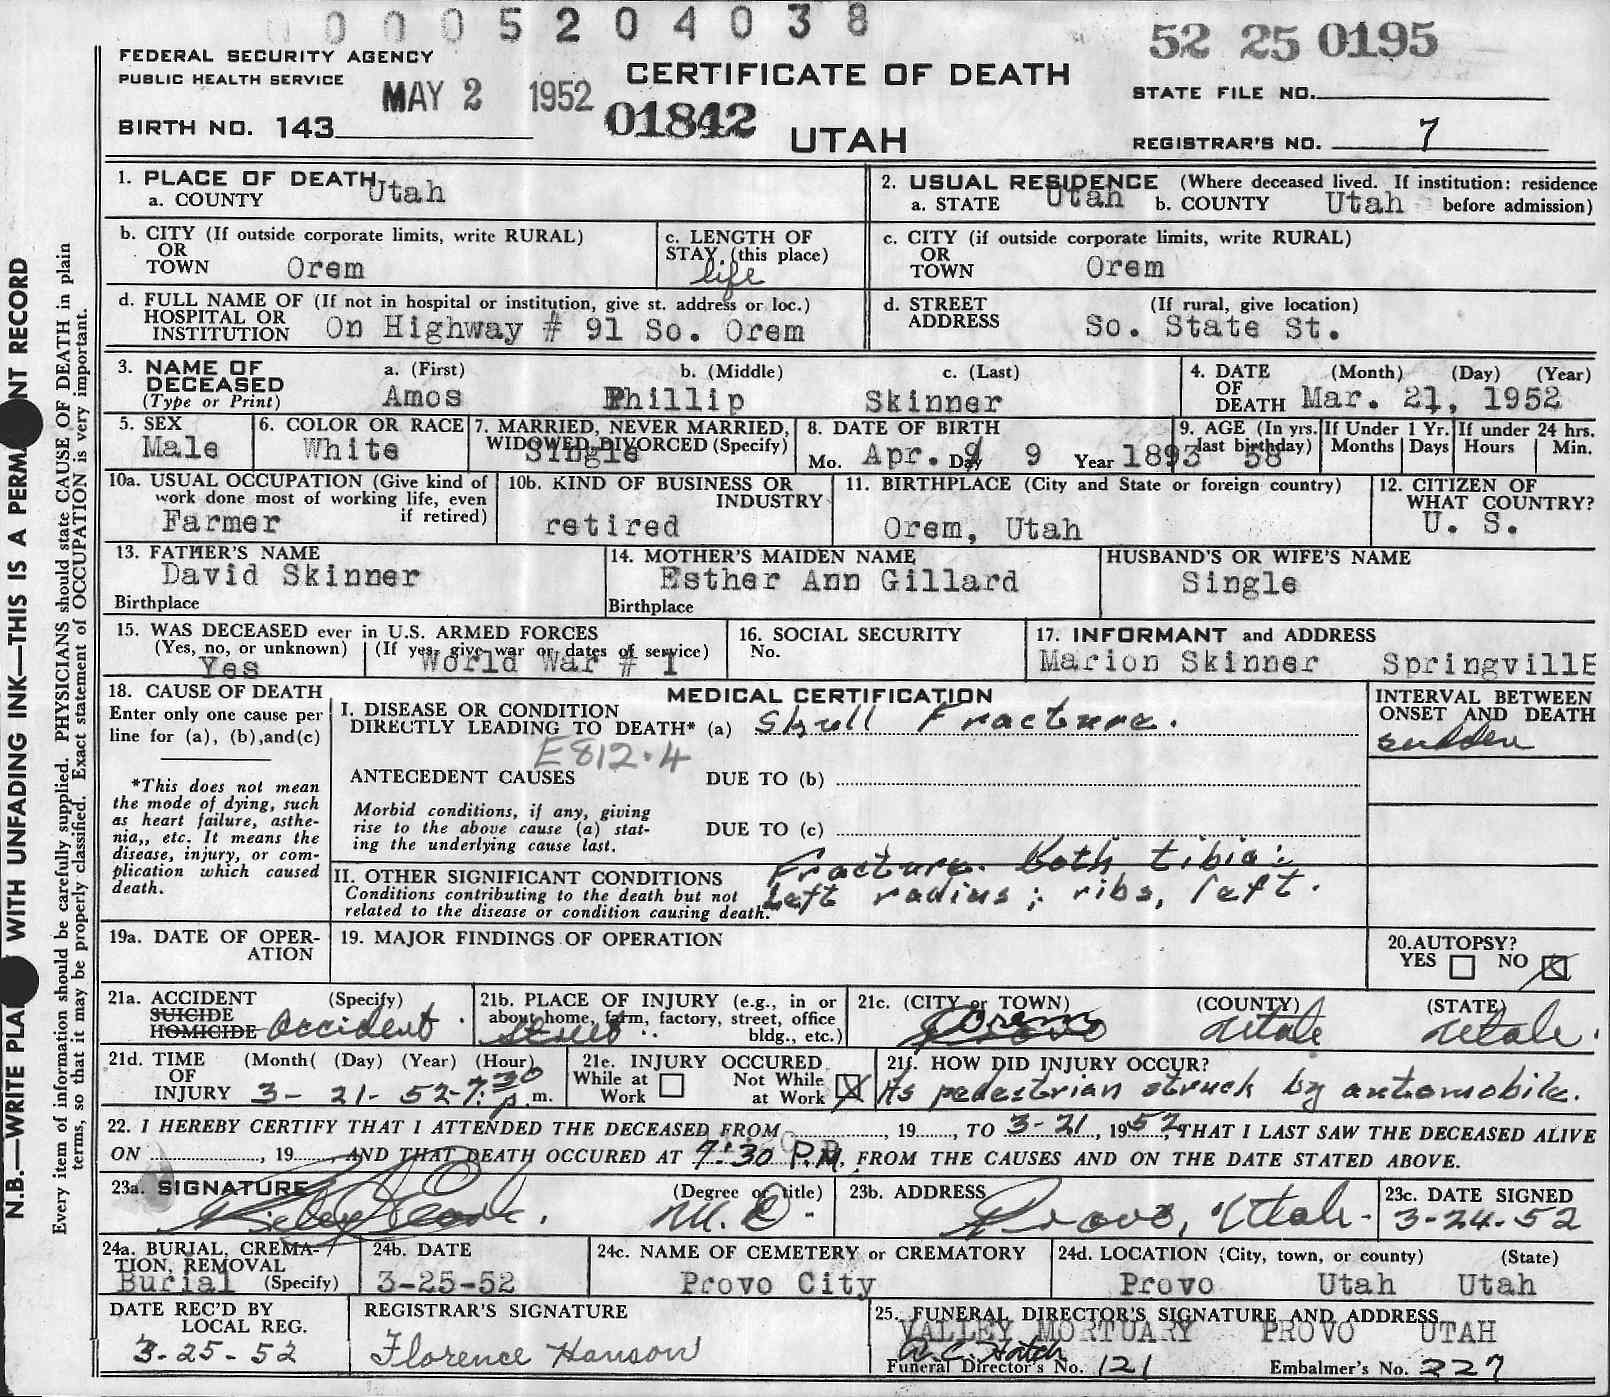 0 0 0 5 2 0 4 0 3 8
52 25 0195
FEDERAL SECURITY AGENCY
PUBLIC HEALTH SERVICE
MAY 2 1952
CERTIFICATE OF DEATH
STATE FILE NO.
BIRTH NO. 143
01842
UTAH
REGISTRAR'S NO. 7
1. PLACE OF DEATH
a. COUNTY Utah
2. USUAL RESIDENCE (Where deceased lived. If institution: residence
a. STATE Utah b. COUNTY Utah before admission)
b. CITY (If outside corporate limits, write RURAL)
OR
TOWN Orem
c. LENGTH OF
STAY (this place)
life
c. CITY (if outside corporate limits, write RURAL)
OR
TOWN Orem
d. FULL NAME OF (If not in hospital or institution, give st. address or loc.)
HOSPITAL OR
INSTITUTION On Highway # 91 So. Orem
d. STREET (If rural, give location)
ADDRESS So. State St.
3. NAME OF DECEASED
(Type or Print)
a. (First) b. (Middle) c. (Last)
Amos Phillip Skinner
4. DATE (Month) (Day) (Year)
OF
DEATH Mar. 21, 1952
5. SEX
Male
6. COLOR OR RACE
White
7. MARRIED, NEVER MARRIED,
WIDOWED, DIVORCED (Specify)
Single
8. DATE OF BIRTH
Mo. Apr. Day 9 Year 1893
9. AGE (In yrs. last birthday) 58
If Under 1 Yr. Months Days
If under 24 hrs. Hours Min.
10a. USUAL OCCUPATION (Give kind of
work done most of working life, even
if retired)
Farmer
10b. KIND OF BUSINESS OR
INDUSTRY
retired
11. BIRTHPLACE (City and State or foreign country)
Orem, Utah
12. CITIZEN OF
WHAT COUNTRY?
U. S.
13. FATHER'S NAME
David Skinner
Birthplace
14. MOTHER'S MAIDEN NAME
Esther Ann Gillard
Birthplace
HUSBAND'S OR WIFE'S NAME
Single
15. WAS DECEASED ever in U.S. ARMED FORCES
(Yes, no, or unknown) (If yes, give war or dates of service)
Yes World War # 1
16. SOCIAL SECURITY
No.
17. INFORMANT and ADDRESS
Marion Skinner Springville
18. CAUSE OF DEATH
Enter only one cause per
line for (a), (b),and(c)
*This does not mean
the mode of dying, such
as heart failure, asthe-
nia,, etc. It means the
disease, injury, or com-
plication which caused
death.
MEDICAL CERTIFICATION
I. DISEASE OR CONDITION
DIRECTLY LEADING TO DEATH* (a) Skull Fracture.
E812.4
ANTECEDENT CAUSES DUE TO (b)
Morbid conditions, if any, giving
rise to the above cause (a) stat-
ing the underlying cause last.
DUE TO (c)
II. OTHER SIGNIFICANT CONDITIONS
Conditions contributing to the death but not
related to the disease or condition causing death.
Fracture. both tibia;
Left radius; ribs, left.
INTERVAL BETWEEN
ONSET AND DEATH
sudden
19a. DATE OF OPER-
ATION
19. MAJOR FINDINGS OF OPERATION
20.AUTOPSY?
YES NO X
21a. ACCIDENT (Specify)
SUICIDE
HOMICIDE Accident.
21b. PLACE OF INJURY (e.g., in or
about home, farm, factory, street, office
bldg., etc.)
Street
21c. (CITY or TOWN) (COUNTY) (STATE)
Orem Provo Utah Utah.
21d. TIME (Month( (Day) (Year) (Hour)
OF
INJURY 3- 21- 52-7:30 p.m.
21e. INJURY OCCURED
While at Work Not While at Work X
21f. HOW DID INJURY OCCUR?
As pedestrian struck by automobile.
22. I HEREBY CERTIFY THAT I ATTENDED THE DECEASED FROM , 19 , TO 3-21, 1952, THAT I LAST SAW THE DECEASED ALIVE
ON , 19 , AND THAT DEATH OCCURED AT 7:30 P.M. FROM THE CAUSES AND ON THE DATE STATED ABOVE.
23a. SIGNATURE (Degree or title)
M.D.
23b. ADDRESS
Provo, Utah.
23c. DATE SIGNED
3-24-52
24a. BURIAL, CREMA-
TION, REMOVAL
Burial (Specify)
24b. DATE
3-25-52
24c. NAME OF CEMETERY or CREMATORY
Provo City
24d. LOCATION (City, town, or county) (State)
Provo Utah Utah
DATE REC'D BY
LOCAL REG.
3-25-52
REGISTRAR'S SIGNATURE
Florence Hanson
25. FUNERAL DIRECTOR'S SIGNATURE AND ADDRESS
VALLEY MORTUARY PROVO UTAH
W. C. Hatch
Funeral Director's No. 121 Embalmer's No. 227
N.B.—WRITE PLA WITH UNFADING INK—THIS IS A PERMA NT RECORD
Every item of information should be carefully supplied. PHYSICIANS should state CAUSE OF DEATH in plain
terms, so that it may be properly classified. Exact statement of OCCUPATION is very important.